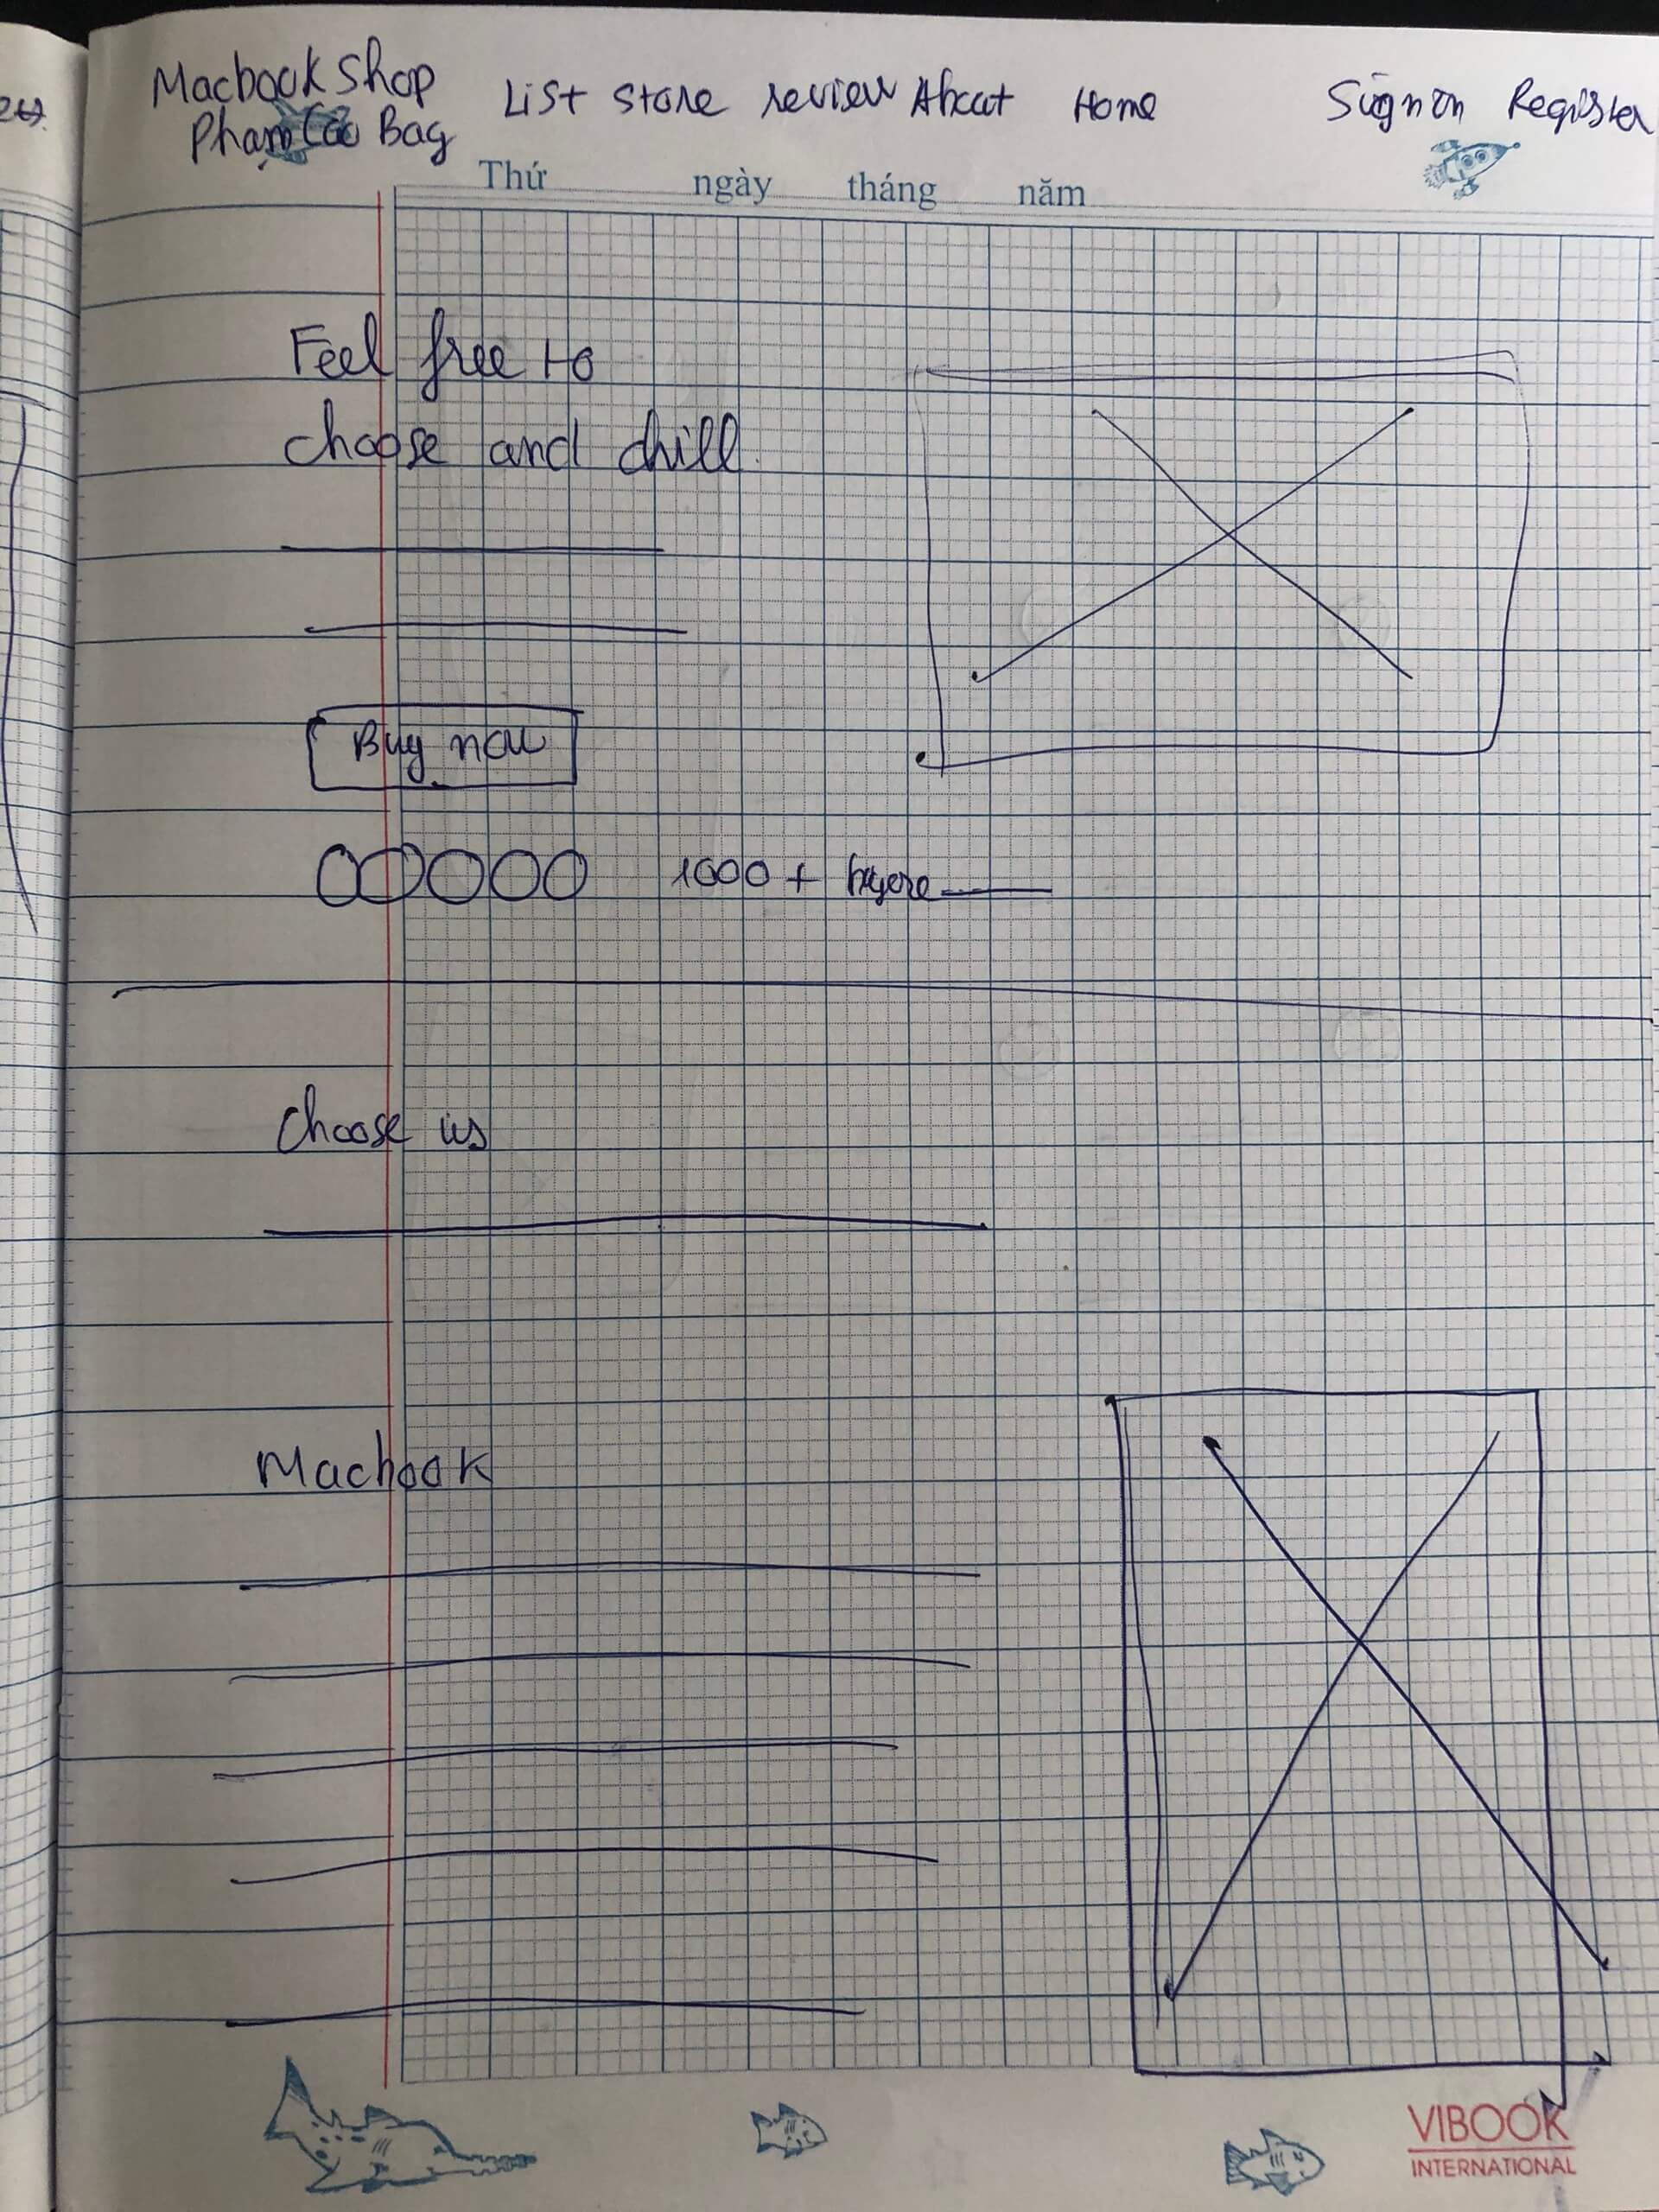 Macbook Shop
Pham Cao Bag
List store review About Home
Sign on Register
Thứ ngày tháng năm
Feel free to
choose and chill.
Buy now
1000 +
Choose us
Macbook
VIBOOK
INTERNATIONAL